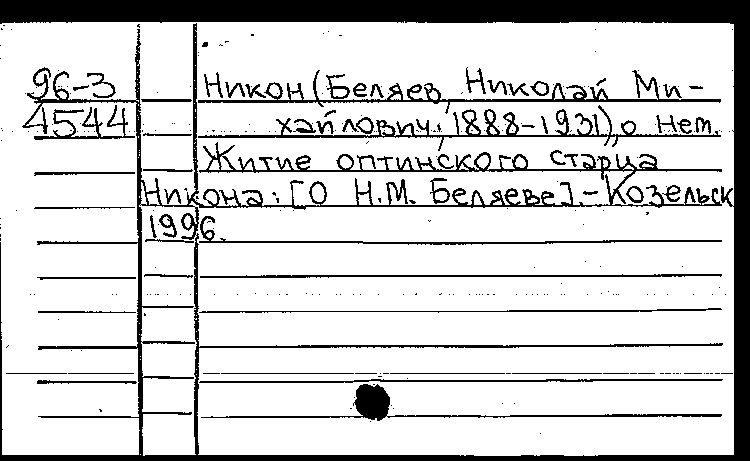 96-3 Никон (Беляев, Николай Ми-
4544 хайлович; 1888-1931), о нем.
Житие оптинского старца
Никона: [О Н.М. Беляеве]. - Козельск
1996.